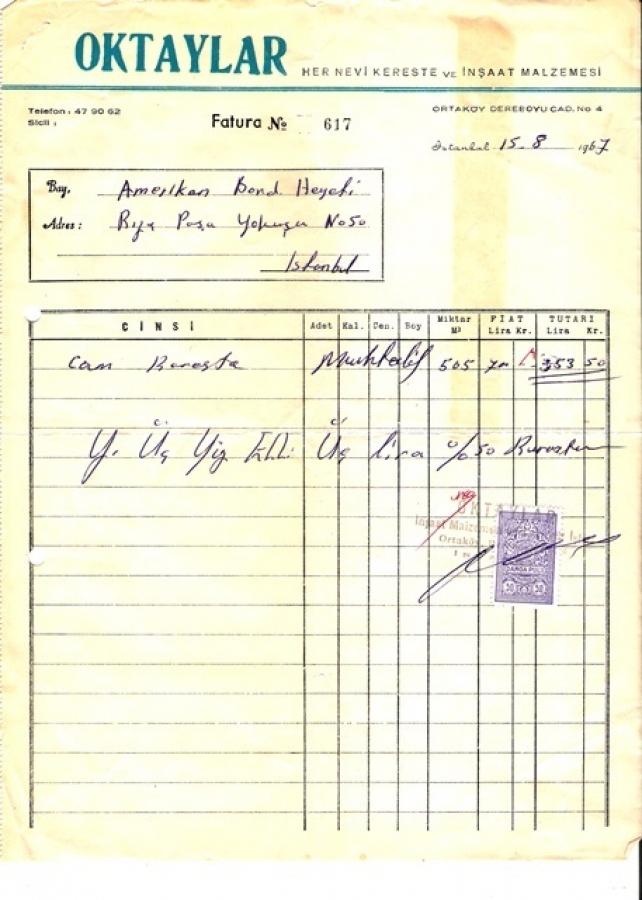 OKTAYLAR HER NEVİ KERESTE VE İNŞAAT MALZEMESİ
Telefon : 47 90 62
Sicil :
Fatura № 617
ORTAKÖY DEREBOYU CAD. No 4
İstanbul 15-8 1967
Bay, Amerikan Bord Heyeti
Adres : Rıza Paşa Yokuşu No 50
İstanbul
CİNSİ Adet Kal. Gen. Boy Miktar M³ FİAT Lira Kr. TUTARI Lira Kr.
Cam Kereste Muhtelif 505 353 50
Y. Üç Yüz Elli Üç lira % 50 Kuruştur
OKTAYLAR
İnşaat Malzemesi
Ortaköy
DAMGA PULU
50 50